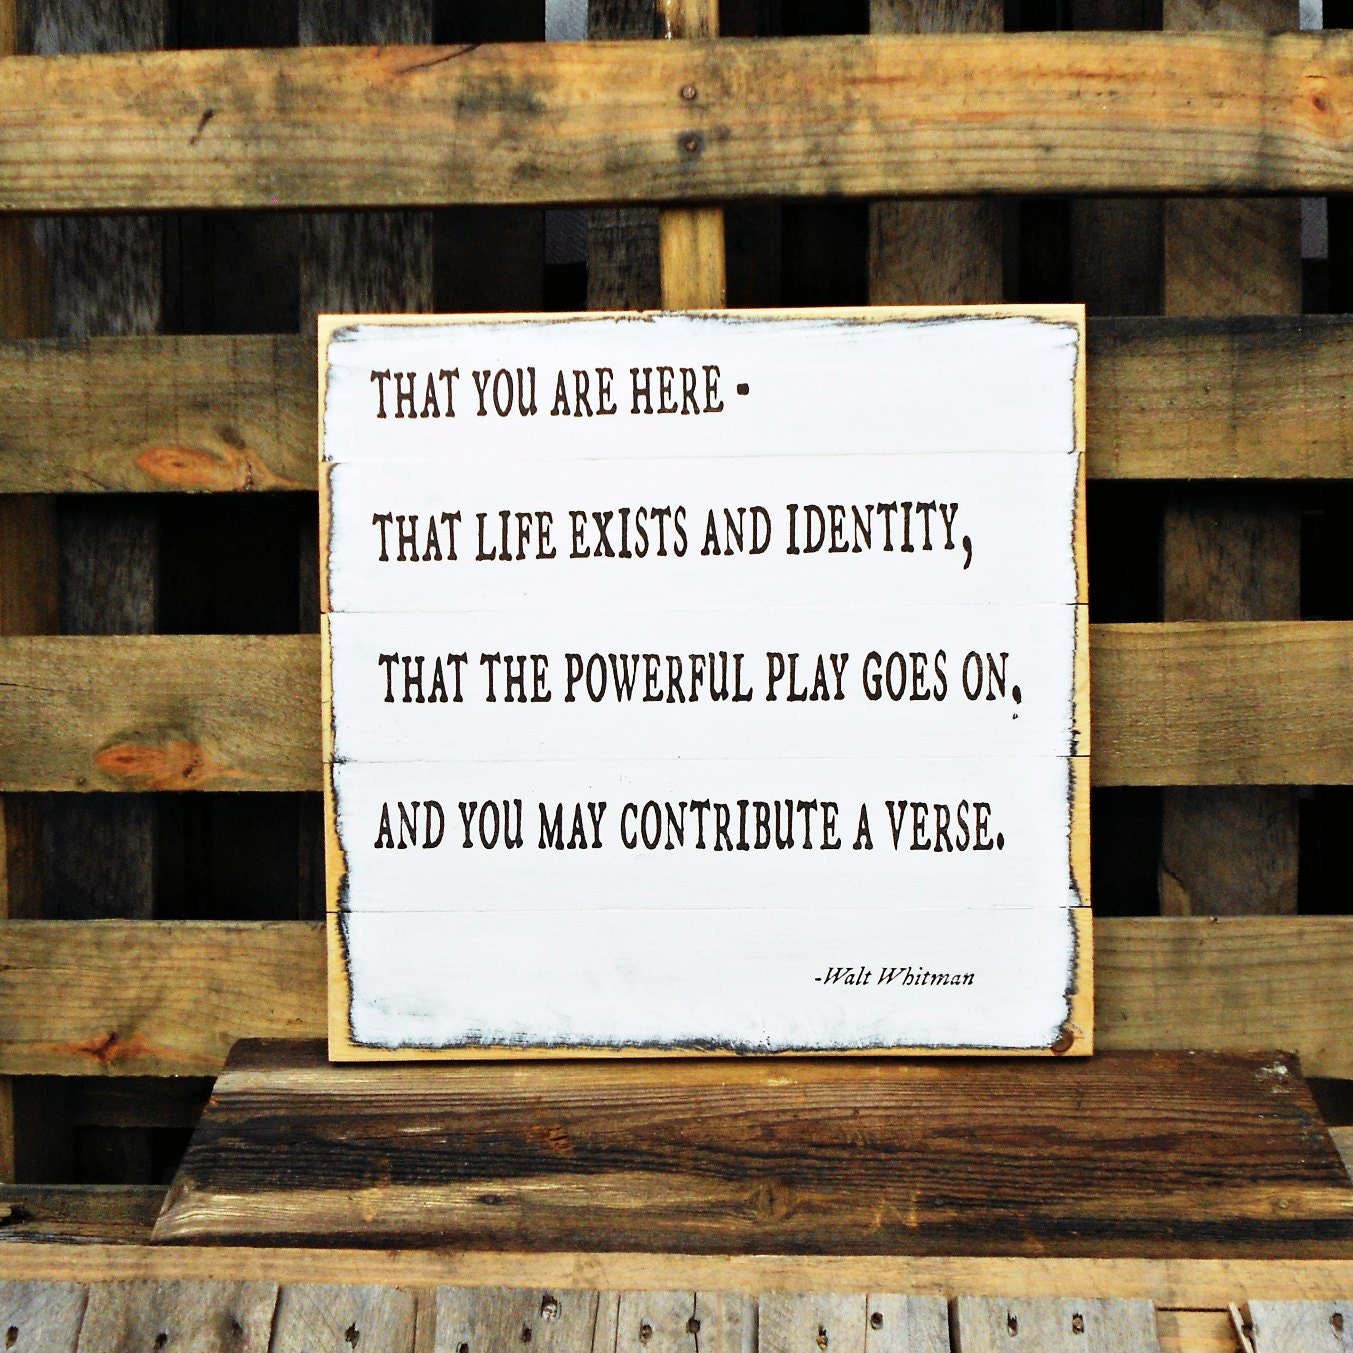 THAT YOU ARE HERE -
THAT LIFE EXISTS AND IDENTITY,
THAT THE POWERFUL PLAY GOES ON,
AND YOU MAY CONTRIBUTE A VERSE.
-Walt Whitman